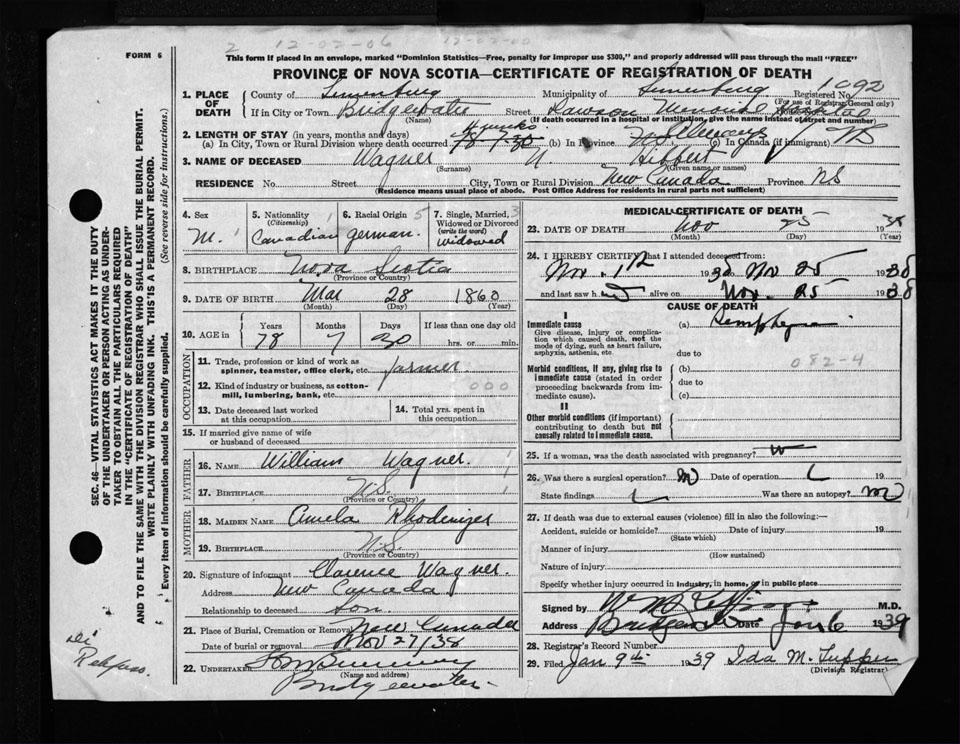 FORM 6
2 12-02-06 12-02-00
This form if placed in an envelope, marked "Dominion Statistics—Free, penalty for improper use $300," and properly addressed will pass through the mail "FREE"
PROVINCE OF NOVA SCOTIA—CERTIFICATE OF REGISTRATION OF DEATH
1. PLACE OF DEATH
County of Lunenburg Municipality of Lunenburg Registered No. 1092
(For use of Registrar General only)
If in City or Town Bridgewater Street Dawson Memorial Hospital
(Name) (If death occurred in a hospital or institution, give the name instead of street and number)
2. LENGTH OF STAY (in years, months and days)
(a) In City, Town or Rural Division where death occurred (b) In Province (c) In Canada (if immigrant)
3. NAME OF DECEASED Wagner N. Hibbert
(Surname) (Given name or names)
RESIDENCE No. Street City, Town or Rural Division New Canada Province NS
(Residence means usual place of abode. Post Office Address for residents in rural parts not sufficient)
4. Sex
M.
5. Nationality (Citizenship)
Canadian
6. Racial Origin
German.
7. Single, Married, Widowed or Divorced (write the word)
Widowed
8. BIRTHPLACE Nova Scotia
(Province or Country)
9. DATE OF BIRTH Mar 28 1860
(Month) (Day) (Year)
10. AGE in Years Months Days If less than one day old
78 7 30 hrs. or min.
OCCUPATION
11. Trade, profession or kind of work as spinner, teamster, office clerk, etc. farmer
12. Kind of industry or business, as cotton-mill, lumbering, bank, etc. 000
13. Date deceased last worked at this occupation
14. Total yrs. spent in this occupation
15. If married give name of wife or husband of deceased
FATHER
16. NAME William Wagner.
17. BIRTHPLACE N.S.
(Province or Country)
MOTHER
18. MAIDEN NAME Amela Rhodenizer
19. BIRTHPLACE N.S.
(Province or Country)
20. Signature of informant Clarence Wagner.
Address New Canada
Relationship to deceased Son.
21. Place of Burial, Cremation or Removal New Canada
Date of burial or removal Nov 27/38
22. UNDERTAKER
(Name and address)
Bridgewater
MEDICAL CERTIFICATE OF DEATH
23. DATE OF DEATH Nov 25 1938
(Month) (Day) (Year)
24. I HEREBY CERTIFY that I attended deceased from:
Nov. 1th 1938 Nov 25 1938
and last saw h alive on Nov. 25 1938
CAUSE OF DEATH
I
Immediate cause (a)
Give disease, injury or complication which caused death, not the mode of dying, such as heart failure, asphyxia, asthenia, etc.
due to
Morbid conditions, if any, giving rise to immediate cause (stated in order proceeding backwards from immediate cause).
(b) 082-4
due to
(c)
II
Other morbid conditions (if important) contributing to death but not causally related to immediate cause.
25. If a woman, was the death associated with pregnancy?
26. Was there a surgical operation? no Date of operation 19
State findings Was there an autopsy? no
27. If death was due to external causes (violence) fill in also the following:—
Accident, suicide or homicide? Date of injury 19
(State which)
Manner of injury
(How sustained)
Nature of injury
Specify whether injury occurred in industry, in home, or in public place
Signed by M.D.
Address Date Jan 6 1939
28. Registrar's Record Number
29. Filed Jan 9th 1939 Ida M. Tupper
(Division Registrar)
SEC. 46—VITAL STATISTICS ACT MAKES IT THE DUTY OF THE UNDERTAKER OR PERSON ACTING AS UNDERTAKER TO OBTAIN ALL THE PARTICULARS REQUIRED IN THE "CERTIFICATE OF REGISTRATION OF DEATH" AND TO FILE THE SAME WITH THE DIVISION REGISTRAR WHO SHALL ISSUE THE BURIAL PERMIT.
WRITE PLAINLY WITH UNFADING INK. THIS IS A PERMANENT RECORD.
Every item of information should be carefully supplied. (See reverse side for instructions).